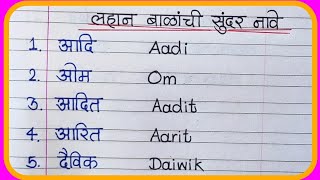 लहान बाळांची सुंदर नावे
1. आदि Aadi
2. ओम Om
3. आदित Aadit
4. आरित Aarit
5. दैविक Daiwik